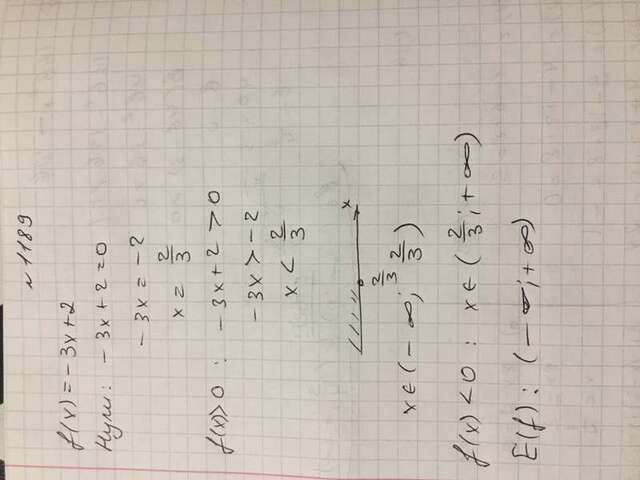 №1189
f(x) = -3x+2
Нули: -3x+2=0
-3x = -2
x = 2/3
f(x)>0 : -3x+2 > 0
-3x > -2
x < 2/3
x
2/3
x∈(-∞; 2/3)
f(x)<0 : x∈(2/3; +∞)
E(f): (-∞; +∞)